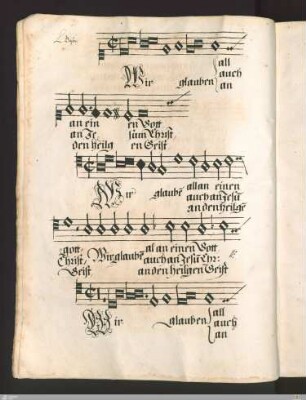 all
Wir glauben auch
an
an ein en Gott
an Je sum Christ
den heilg en Geist
all an einen
Wir glaube auch an Jesu
an den heilge
gott, Wir glaube al an einen Gott
Christ, auch an Jesu Chr:
Geist an den heiligen Geist
all
Wir glauben auch
an